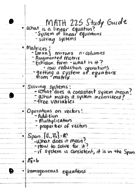 MATH 225 Study Guide
• What is a linear equation?
- System of linear equations
- solving systems
• Matrices:
- rows, columns
- Augmented Matrix
- Echelon form - what is it?
- row reduction operations
- getting a system of equations
from matrix
• Solving systems:
- What does a consistent system mean?
- What makes a system inconsistent?
- free variables
• Operations on vectors:
- Addition
- Multiplication
- properties of vectors
• Span
- What does it mean?
- How to solve for it?
- if system is consistent, it is in the Span
• Homogeneous equations